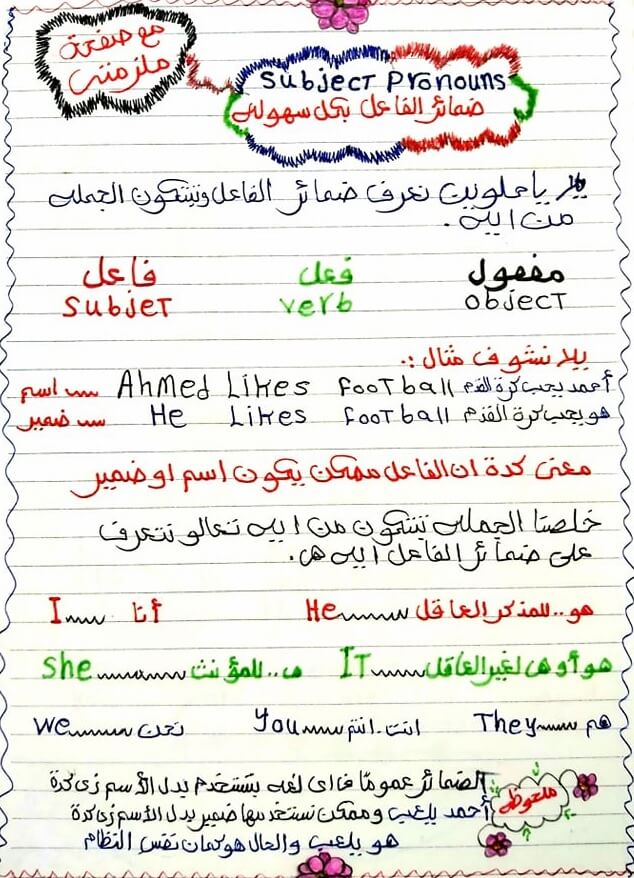 مع صفحة
ملزمتى
Subject Pronouns
ضمائر الفاعل بكل سهوله
يلا يا حلوين نعرف ضمائر الفاعل وتيتكون الجمله
من ايه .
فاعل فعل مفعول
Subjet verb object
يلا نشوف مثال :.
اسم Ahmed Likes football أحمد يحب كرة القدم
ضمير He Likes football هو يحب كرة القدم
معنى كدة ان الفاعل ممكن يكون اسم او ضمير
خلصنا الجمله تيتكون من ايه تعالو نتعرف
على ضمائر الفاعل ايه هى.
I أنا He هو..للمذكر العاقل
She هى..للمؤنث IT هو أو هى لغير العاقل
We نحن You انت.انتم They هم
ملحوظه
الضمائر عمومًا فى اى لغه بتستخدم بدل الأسم زى كدة
أحمد يلعب وممكن نستخدمها ضمير بدل الأسم زى كدة
هو يلعب والحال هو كمان نفس النظام